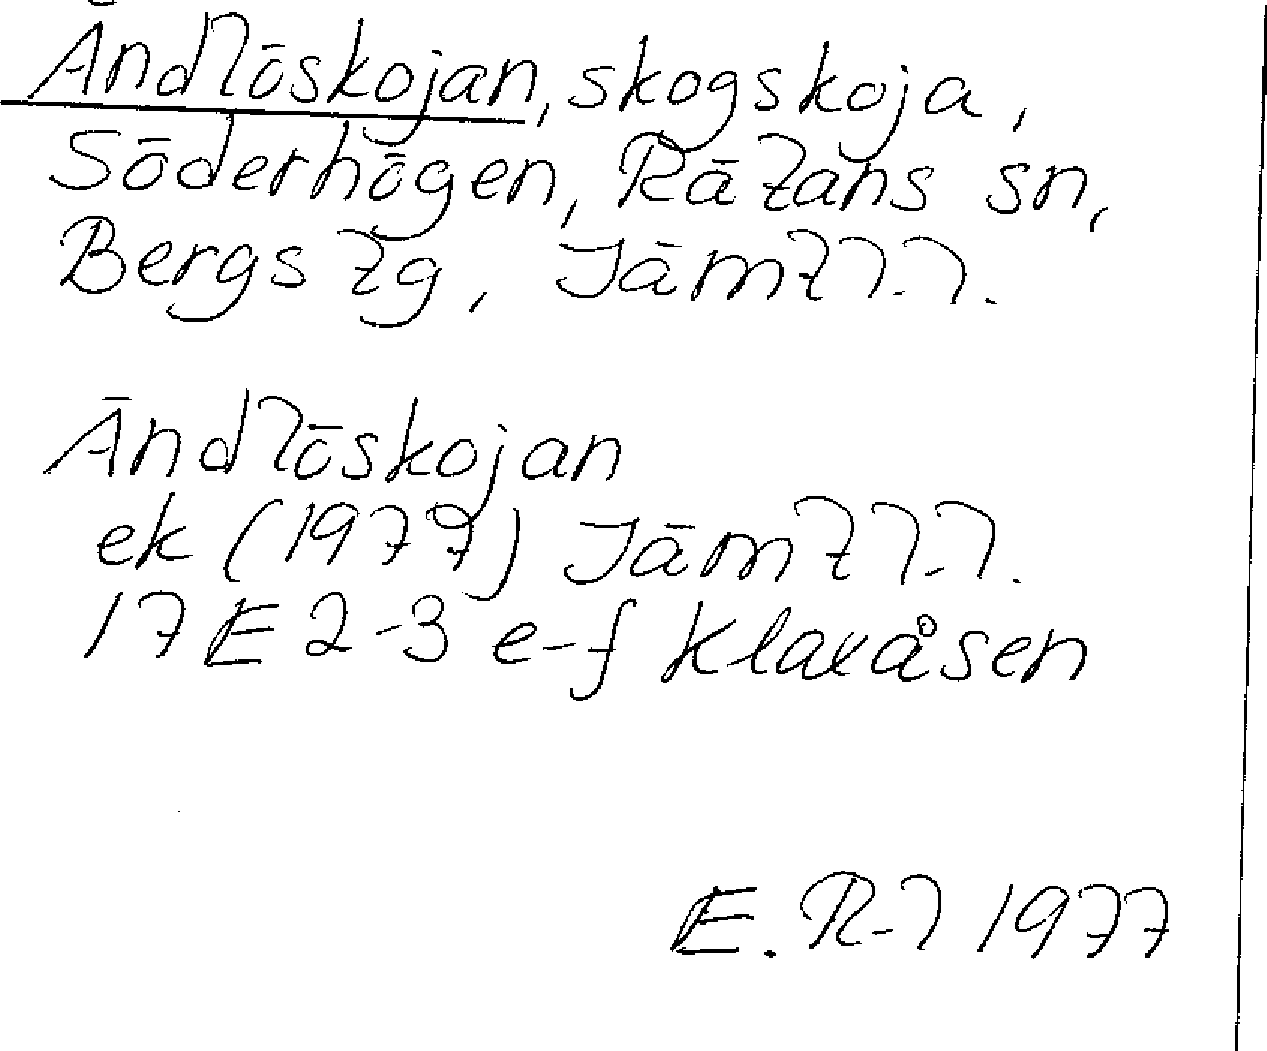 Ändlöskojan, skogskoja,
Söderhögen, Rätans sn,
Bergs tg, Jämtl.l.
Ändlöskojan
ek (1977) Jämtl.l.
17E 2-3 e-f Klaxåsen
E. R-l 1977